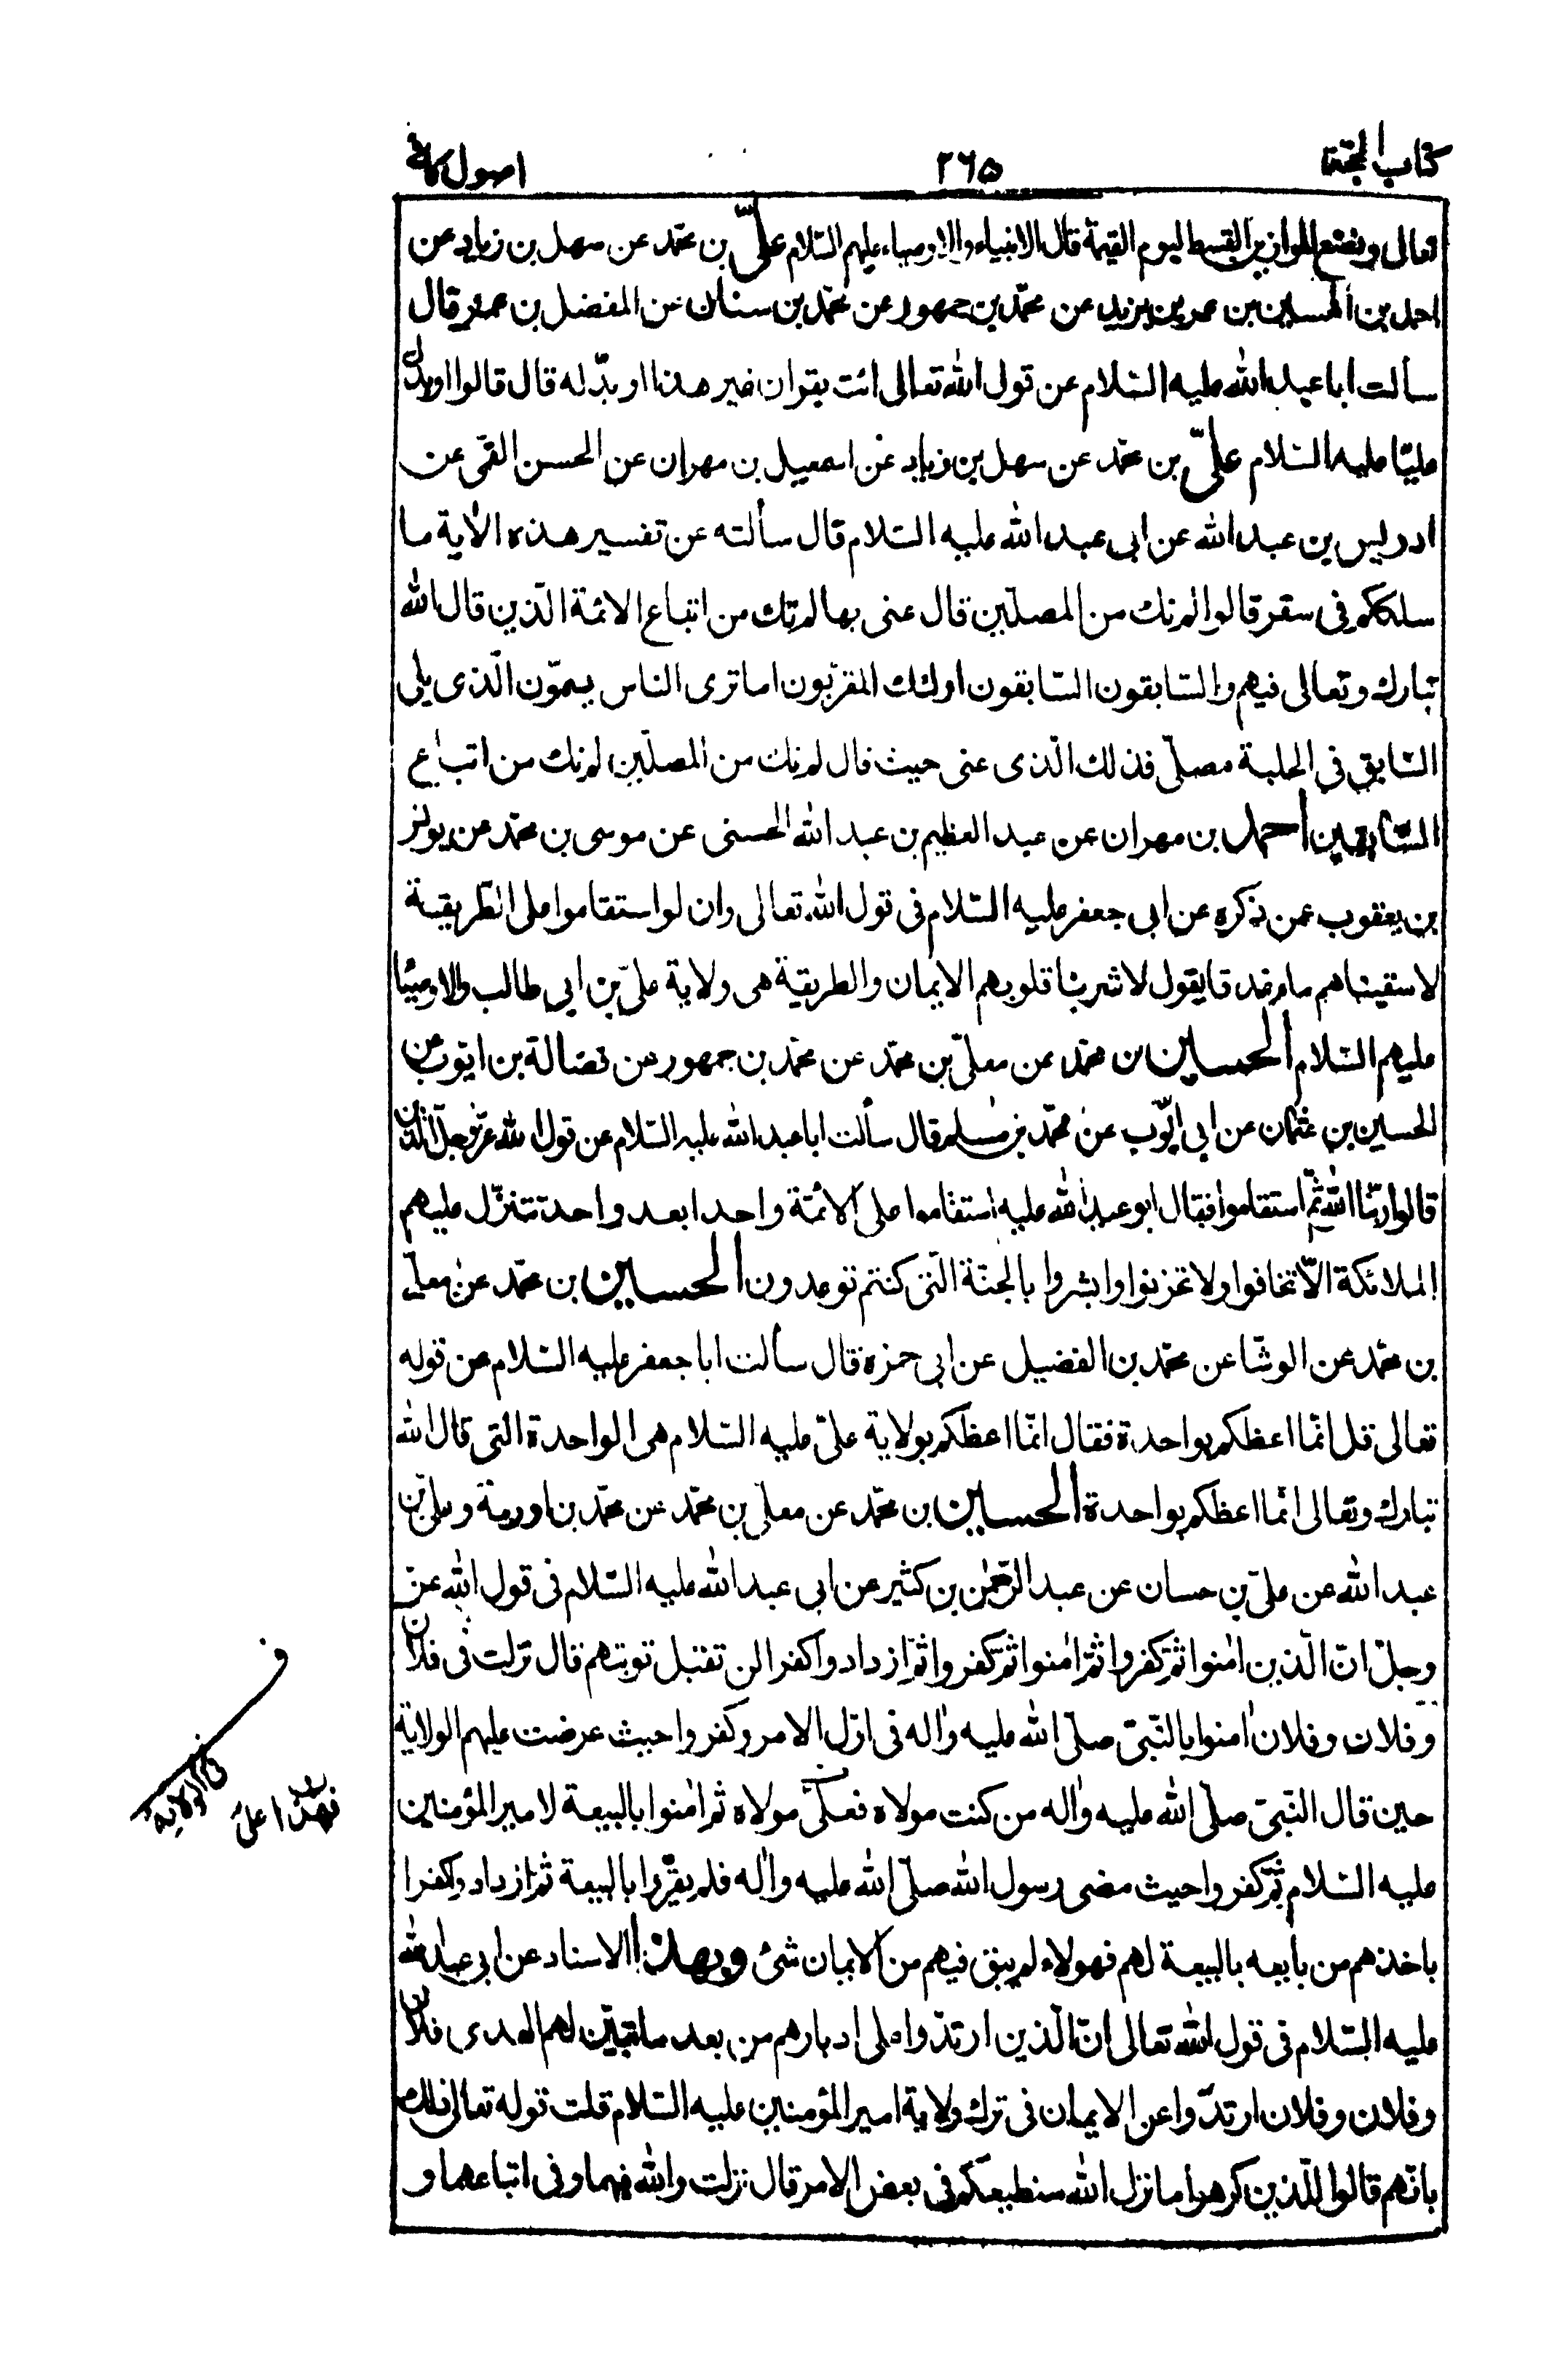 كتاب الحجة ٢٦٥ اصول كافي
تعالى ونضع الموازين القسط ليوم القيمة قال الانبياء والاوصياء عليهم السّلام علىّ بن محمّد عن سهل بن زياد عن
احمد بن الحسين بن عمر بن يزيد عن محمّد بن جمهور عن محمّد بن سنان عن المفضل بن عمر قال
سألت ابا عبد الله عليه السّلام عن قول الله تعالى ائت بقران غير هذا او بدّله قال قالوا او بدّل
عليّا عليه السّلام علىّ بن محمّد عن سهل بن زياد عن اسمعيل بن مهران عن الحسن القمّى عن
ادريس بن عبد الله عن ابى عبد الله عليه السّلام قال سألته عن تفسير هذه الاٰية ما
سلككم فى سقر قالوا لم نك من المصلّين قال عنى بها لم نك من اتباع الائمة الّذين قال الله
تبارك وتعالى فيهم والسّابقون السّابقون اولئك المقرّبون اما ترى الناس يسمّون الّذى يلى
السّابق فى الحلبة مصلّى فذلك الّذى عنى حيث قال لم نك من المصلّين لم نك من اتباع
السّابقين احمد بن مهران عن عبد العظيم بن عبد الله الحسنى عن موسى بن محمّد عن يونس
بن يعقوب عمن ذكره عن ابى جعفر عليه السّلام فى قول الله تعالى وان لو استقاموا على الطّريقة
لاسقيناهم ماء غدقا يقول لاشربنا قلوبهم الايمان والطريقة هى ولاية علىّ بن ابى طالب والاوصيا
عليهم السّلام الحسين بن محمّد عن معلّى بن محمّد عن محمّد بن جمهور عن فضالة بن ايّوب عن
الحسين بن عثمان عن ابى ايّوب عن محمّد بن مسلم قال سألت ابا عبد الله عليه السّلام عن قول الله عزّ وجلّ الّذين
قالوا ربّنا الله ثمّ استقاموا فقال ابو عبد الله عليه استقاموا على الائمّة واحدا بعد واحد تتنزّل عليهم
الملائكة الاّ تخافوا ولا تحزنوا وابشروا بالجنّة الّتى كنتم توعدون الحسين بن محمّد عن معلّى
بن محمّد عن الوشّا عن محمّد بن الفضيل عن ابى حمزة قال سألت ابا جعفر عليه السّلام عن قوله
تعالى قل انّما اعظكم بواحدة فقال انّما اعظكم بولاية علىّ عليه السّلام هى الواحدة الّتى قال الله
تبارك وتعالى انّما اعظكم بواحدة الحسين بن محمّد عن معلّى بن محمّد عن محمّد بن اورمة وعلىّ بن
عبد الله عن علىّ بن حسان عن عبد الرّحمٰن بن كثير عن ابى عبد الله عليه السّلام فى قول الله عزّ
وجلّ انّ الّذين اٰمنوا ثمّ كفروا ثمّ اٰمنوا ثمّ كفروا ثمّ ازدادوا كفرا لن تقبل توبتهم قال نزلت فى فلان
وفلان وفلان اٰمنوا بالنّبىّ صلّى الله عليه واٰله فى اوّل الامر وكفروا حيث عرضت عليهم الولاية
حين قال النّبىّ صلّى الله عليه واٰله من كنت مولاه فعلىّ مولاه ثم اٰمنوا بالبيعة لامير المؤمنين
عليه السّلام ثمّ كفروا حيث مضى رسول الله صلّى الله عليه واٰله فلم يقرّوا بالبيعة ثمّ ازدادوا كفرا
باخذهم من بايعه بالبيعة لهم فهولاء لم يبق فيهم من الايمان شئ وبهذا الاسناد عن ابى عبد الله
عليه السّلام فى قول الله تعالى انّ الّذين ارتدّوا على ادبارهم من بعد ما تبيّن لهم الهدى فلان
وفلان وفلان ارتدّوا عن الايمان فى ترك ولاية امير المؤمنين عليه السّلام قلت قوله تعالى ذلك
بانّهم قالوا للّذين كرهوا ما نزل الله سنطيعكم فى بعض الامر قال نزلت والله فيهما وفى اتباعهما و